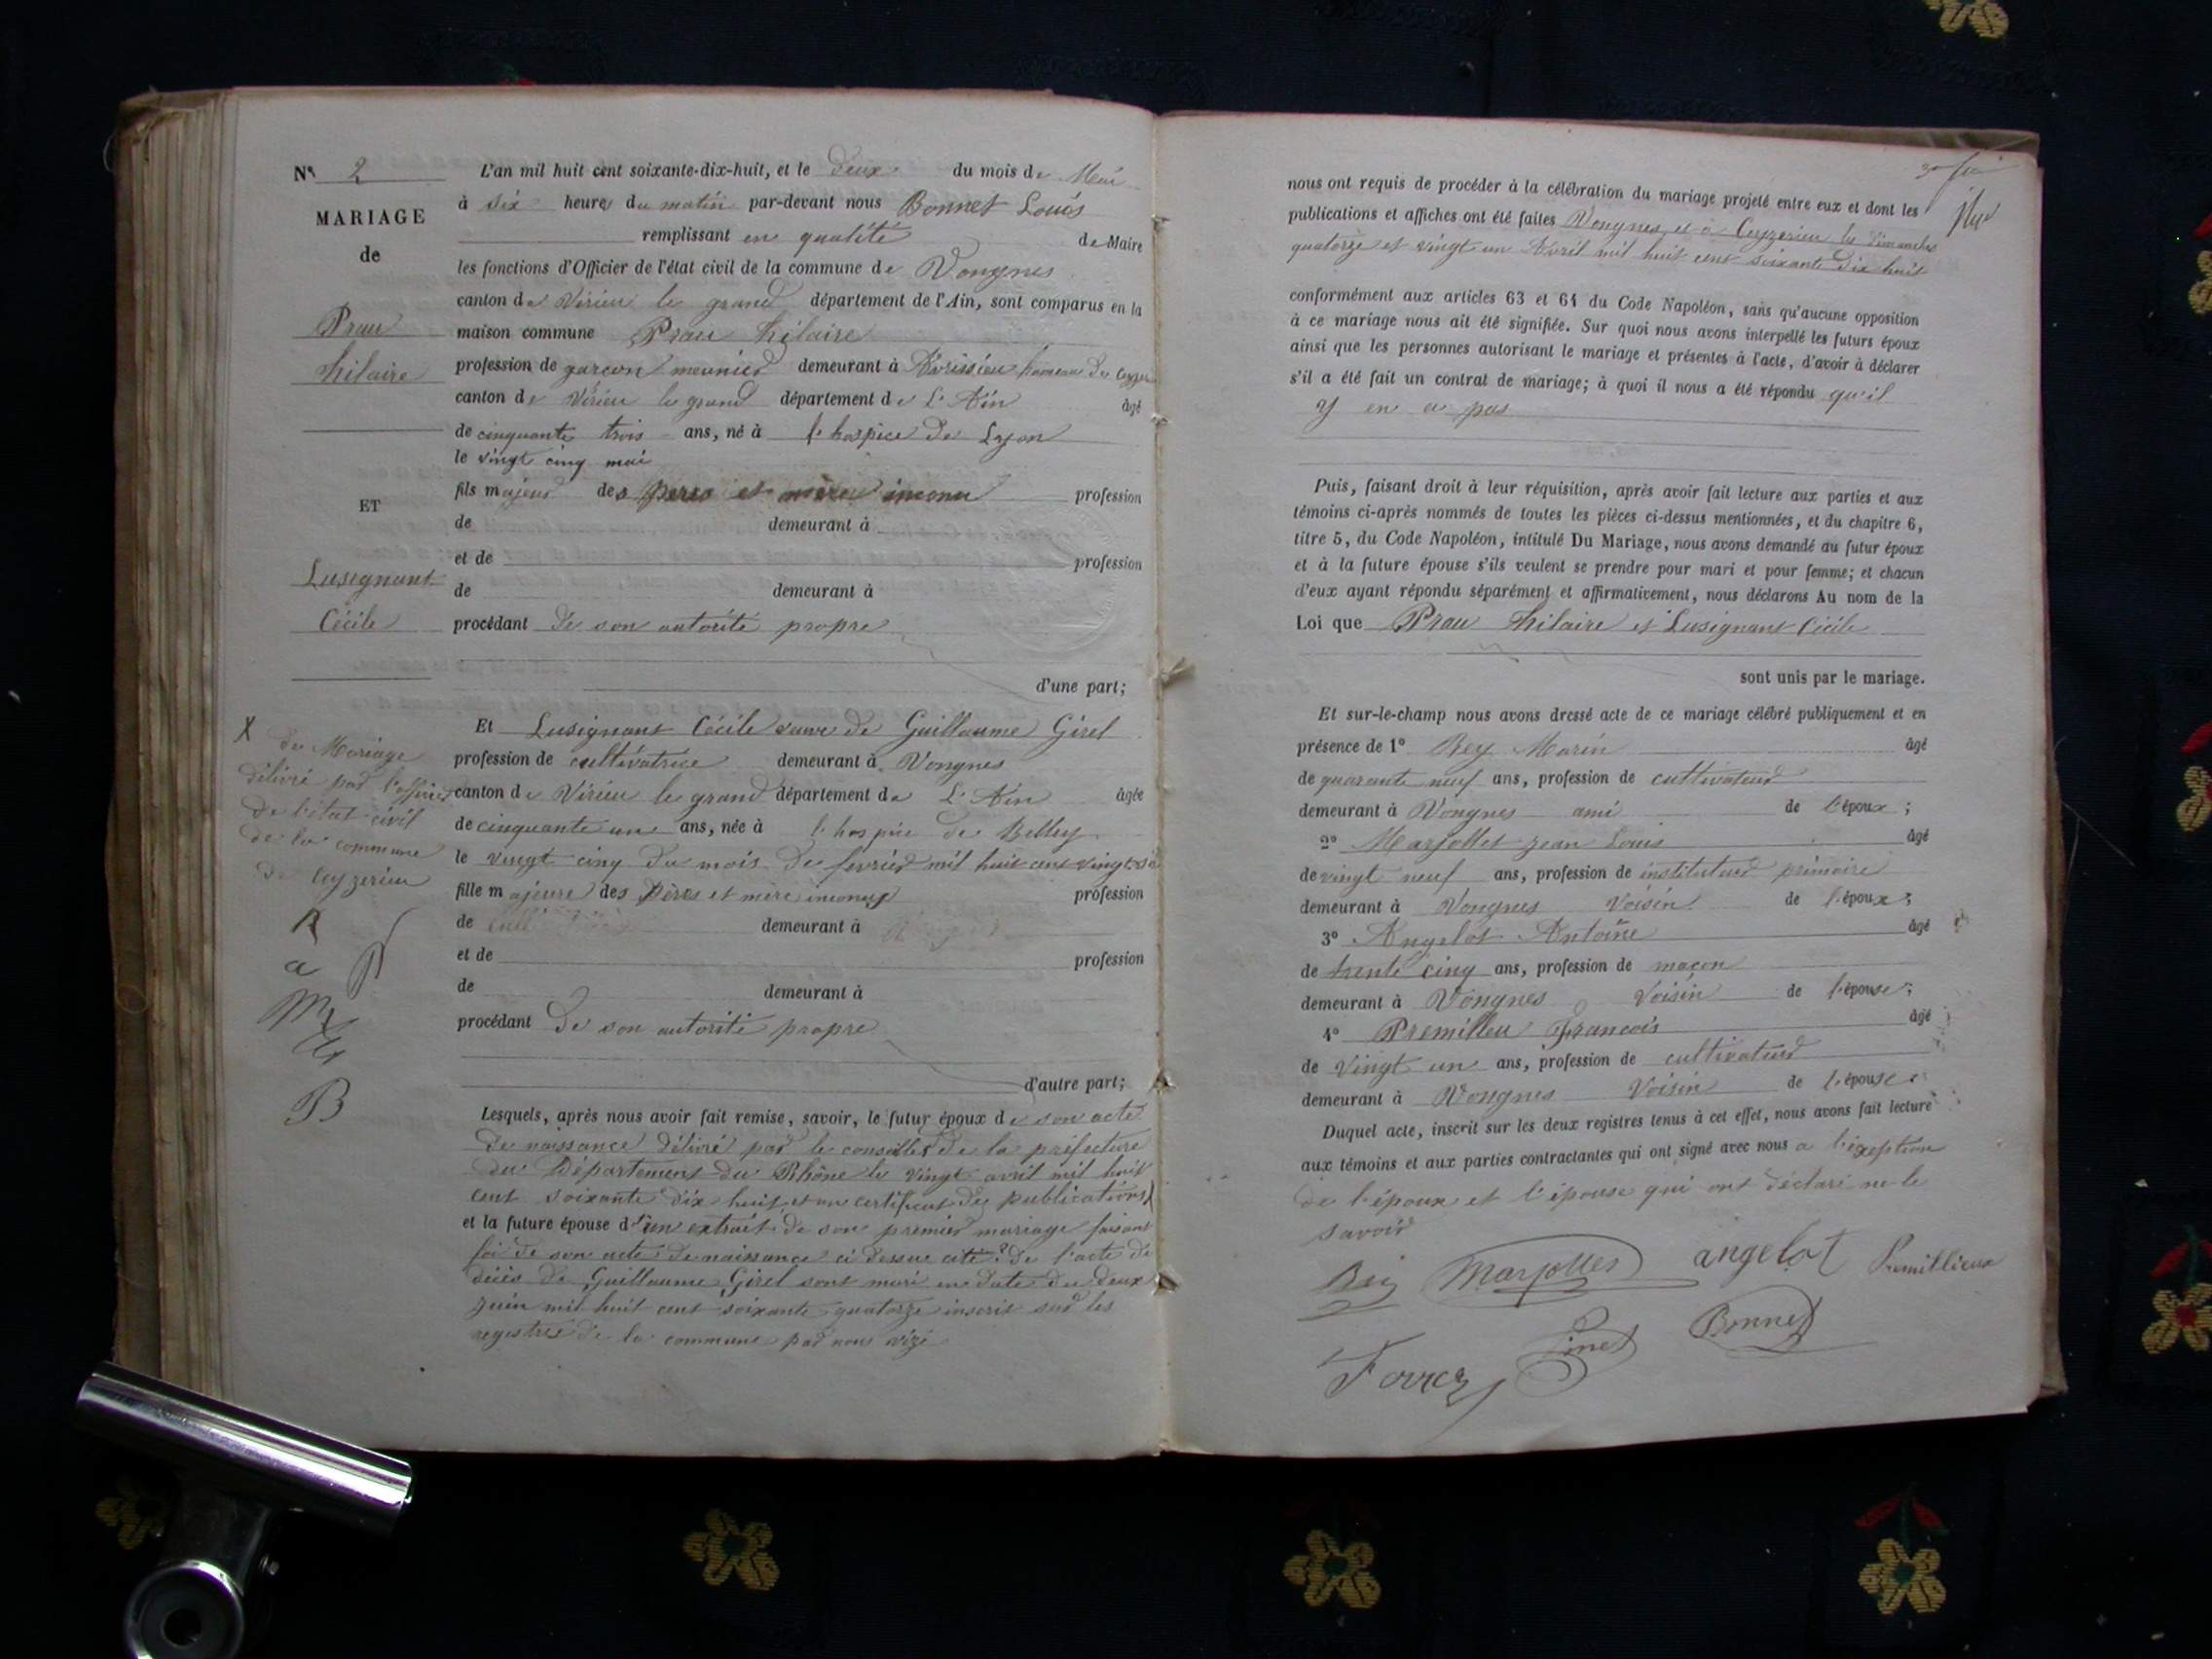 N° 2
MARIAGE
de
Prau
hilaire
ET
Lusignant
Cécile
L'an mil huit cent soixante-dix-huit, et le deux du mois de Mai
à six heures du matin par-devant nous Bonnet Louis
remplissant en qualité de Maire
les fonctions d'Officier de l'état civil de la commune de Vongnes
canton de Virieu le grand département de l'Ain, sont comparus en la
maison commune Prau hilaire
profession de garçon meunier demeurant à Avrissieu hameau de
canton de Virieu le grand département de L'Ain âgé
de cinquante trois ans, né à l'hospice de Lyon
le vingt cinq mai
fils majeur des peres et mère inconu profession
de demeurant à
et de profession
de demeurant à
procédant de son autorité propre
d'une part;
Et Lusignant Cécile veuve de Guillaume Girel
profession de cultivatrice demeurant à Vongnes
canton de Virieu le grand département de L'Ain âgée
de cinquante un ans, née à l'hospice de Belley
le vingt cinq du mois de fevrier mil huit cent vingt
fille majeure des Pères et mère inconus profession
de demeurant à
et de profession
de demeurant à
procédant de son autorité propre
d'autre part;
Lesquels, après nous avoir fait remise, savoir, le futur époux de son acte
de naissance délivré par le conseiller de la préfecture
du Département du Rhône le vingt avril mil huit
cent soixante dix huit, et un certificat des publications X
et la future épouse d'un extrait de son premier mariage faisant
foi de son acte de naissance ci dessus cité de l'acte de
décès de Guillaume Girel sont mari en date du deux
juin mil huit cent soixante quatorze inscrit sur les
registres de la commune par nous
X du Mariage
délivré par l'officier
de l'état civil
de la commune
de Ceyzerieu
R
a P
M
B
nous ont requis de procéder à la célébration du mariage projeté entre eux et dont les
publications et affiches ont été faites Vongnes et à Ceyzerieu les dimanches
quatorze et vingt un Avril mil huit cent soixante dix huit
conformément aux articles 63 et 64 du Code Napoléon, sans qu'aucune opposition
à ce mariage nous ait été signifiée. Sur quoi nous avons interpellé les futurs époux
ainsi que les personnes autorisant le mariage et présentes à l'acte, d'avoir à déclarer
s'il a été fait un contrat de mariage; à quoi il nous a été répondu qu'il
y en a pas
Puis, faisant droit à leur réquisition, après avoir fait lecture aux parties et aux
témoins ci-après nommés de toutes les pièces ci-dessus mentionnées, et du chapitre 6,
titre 5, du Code Napoléon, intitulé Du Mariage, nous avons demandé au futur époux
et à la future épouse s'ils veulent se prendre pour mari et pour femme; et chacun
d'eux ayant répondu séparément et affirmativement, nous déclarons Au nom de la
Loi que Prau hilaire et Lusignant Cécile
sont unis par le mariage.
Et sur-le-champ nous avons dressé acte de ce mariage célébré publiquement et en
présence de 1° Bey Marin âgé
de quarante neuf ans, profession de cultivateur
demeurant à Vongnes ami de l'époux;
2° Marjollet jean Louis âgé
de vingt neuf ans, profession de instituteur primaire
demeurant à Vongnes Voisin de l'époux;
3° Angelot Antoine âgé
de trente cinq ans, profession de maçon
demeurant à Vongnes Voisin de l'épouse;
4° Premilleu Francois âgé
de vingt un ans, profession de cultivateur
demeurant à Vongnes Voisin de l'épouse.
Duquel acte, inscrit sur les deux registres tenus à cet effet, nous avons fait lecture
aux témoins et aux parties contractantes qui ont signé avec nous a l'exeption
de l'époux et l'épouse qui ont déclaré ne le
savoir
Bey Marjollet angelot Premillieux
Bonnet